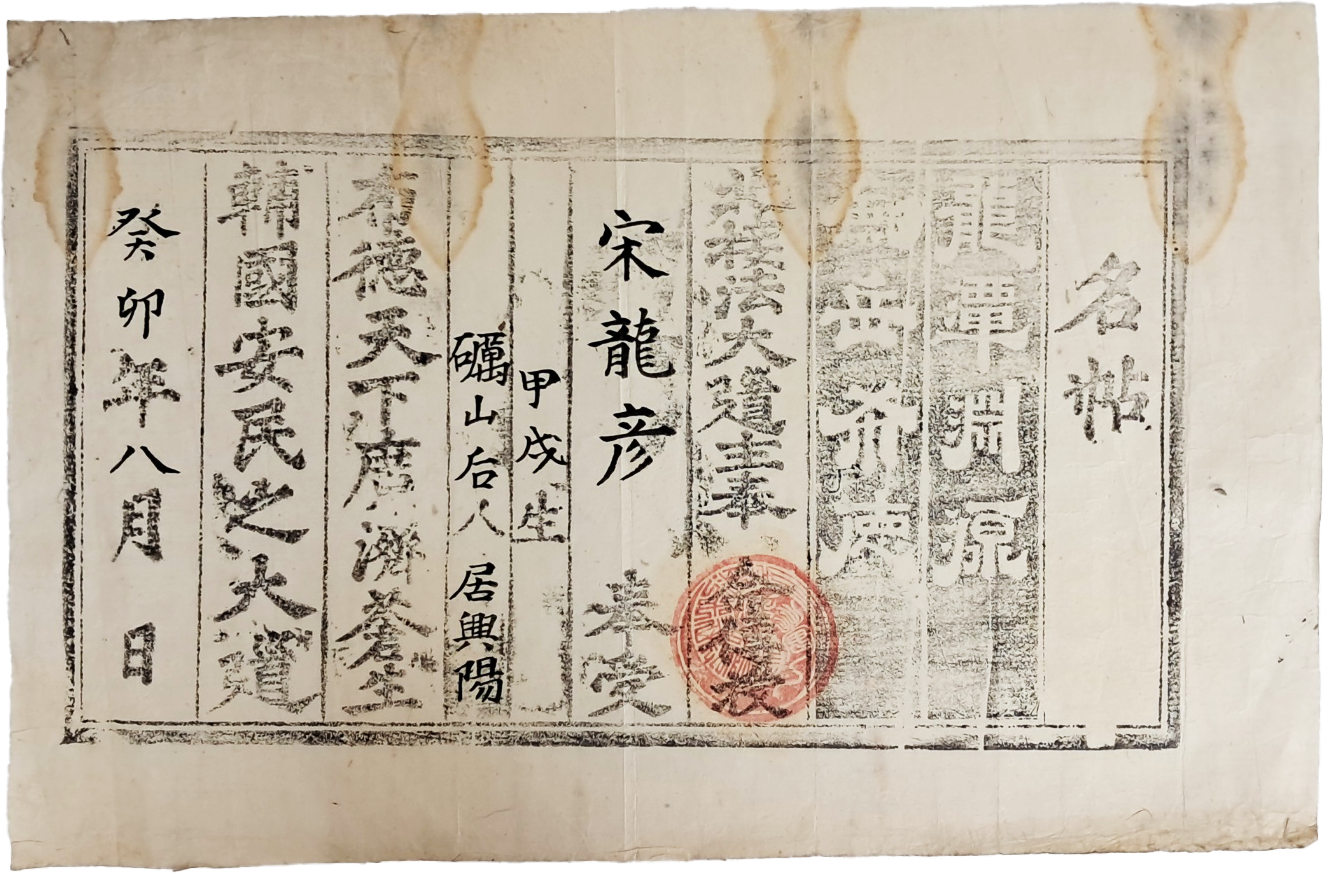 名帖
龍潭淵源
北接法大道主奉
宋龍彦 奉受
甲戌生
礪山后人 居興陽
布德天下廣濟蒼生
輔國安民之大道
癸卯年八月 日